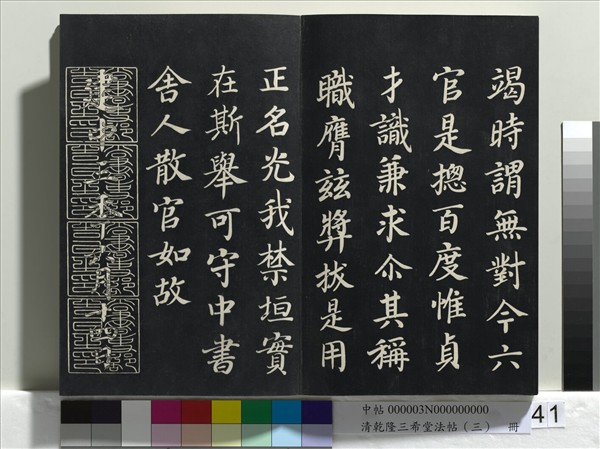 竭時謂無對今六
官是摠百度惟貞
才識兼求尒其稱
職膺茲獎拔是用
正名光我禁垣實
在斯舉可守中書
舍人散官如故
建中三年六月十四日
中帖 000003N000000000
清乾隆三希堂法帖（三） 冊
41